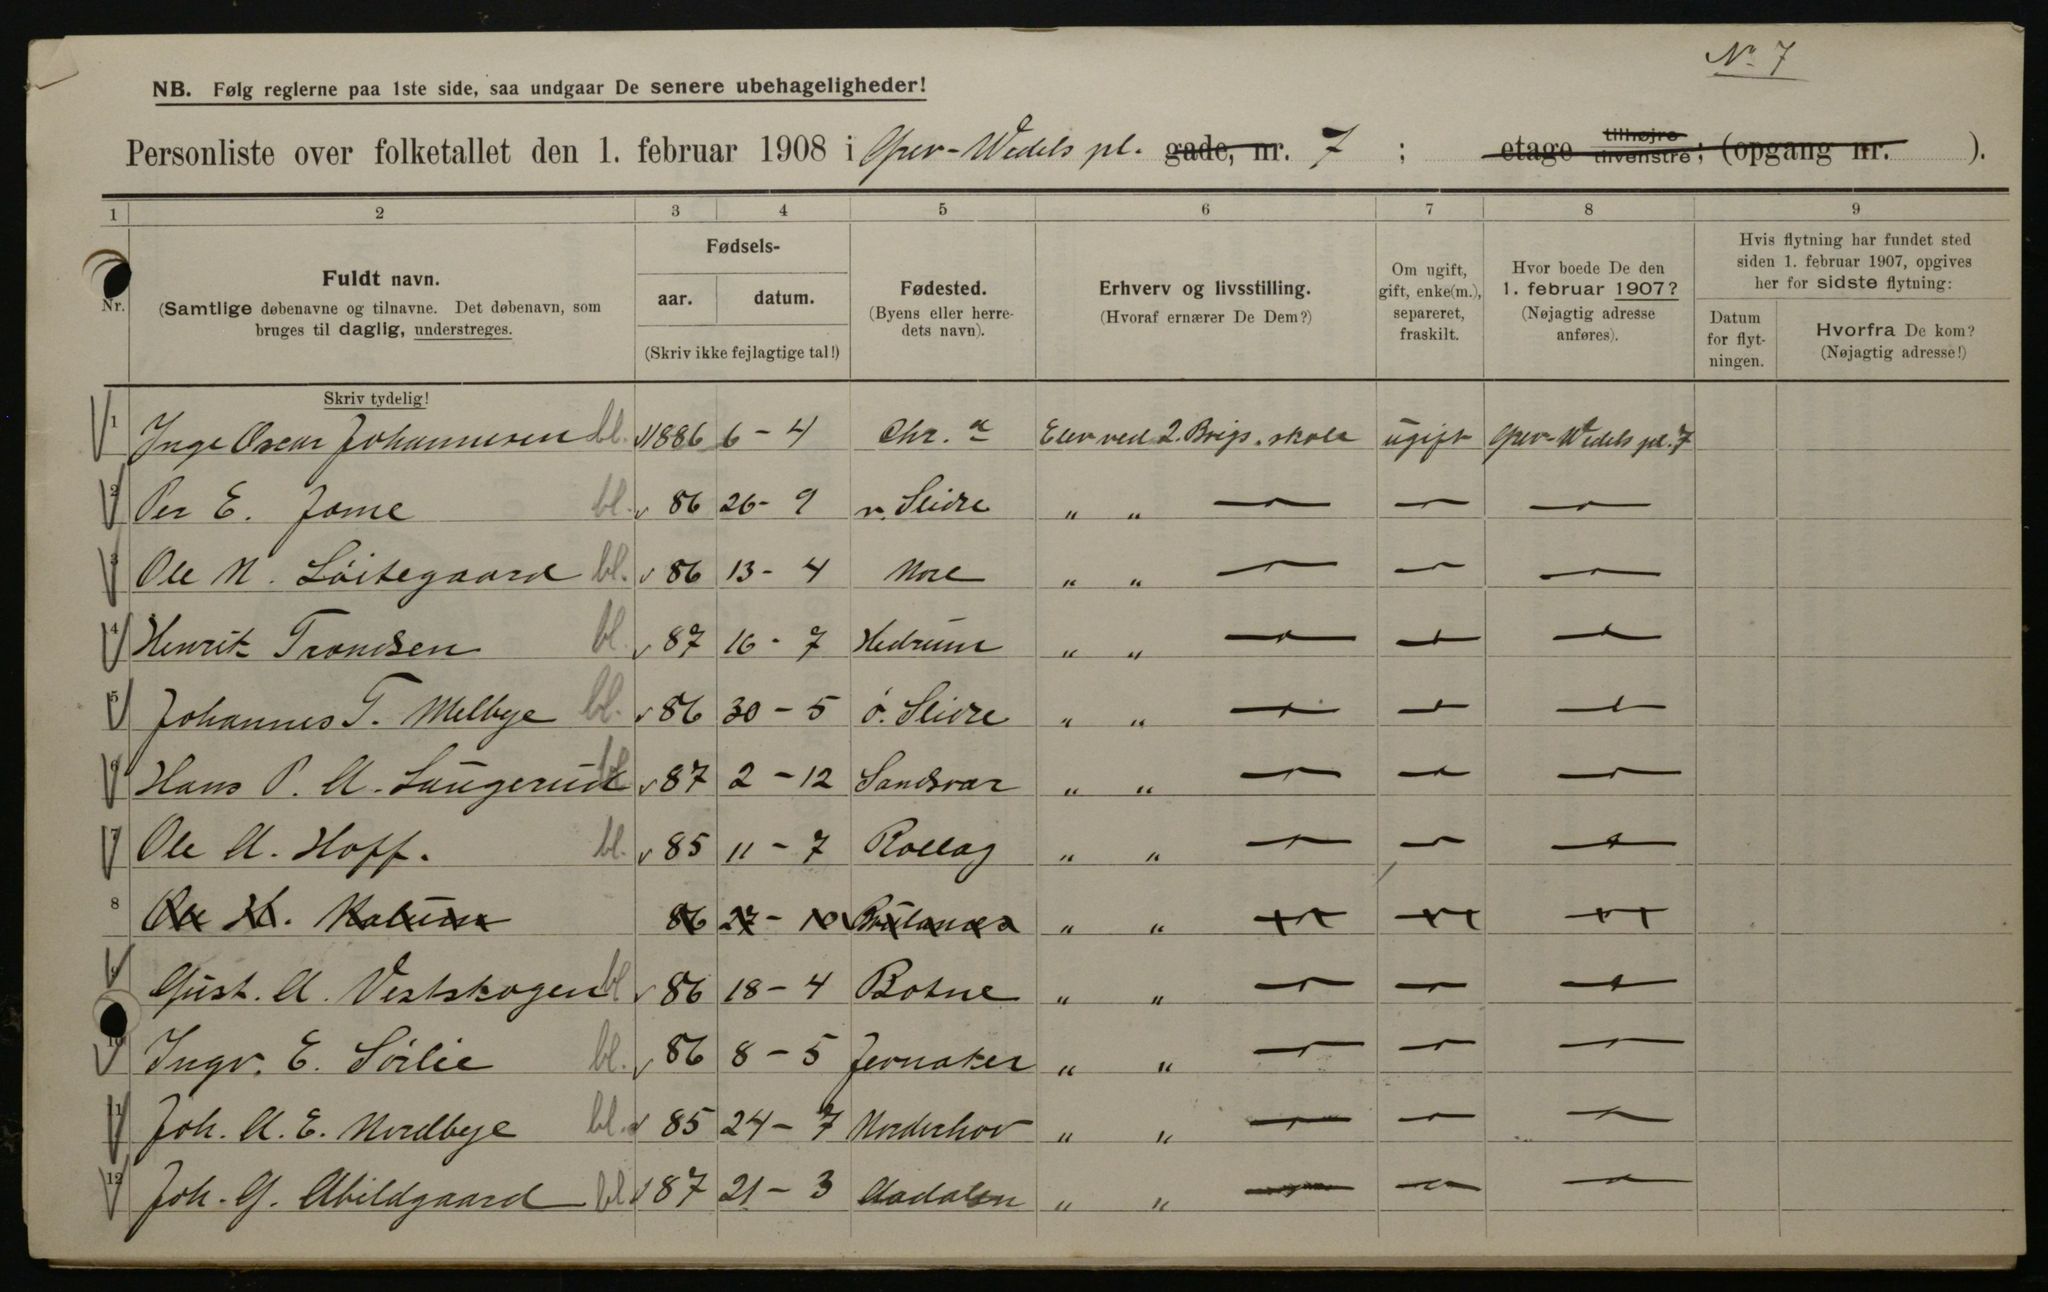 Nº 7
NB. Følg reglerne paa 1ste side, saa undgaar De senere ubehageligheder!
Personliste over folketallet den 1. februar 1908 i Grev-Wedels pl. gade, nr. 7 ; etage tilhøjre tilvenstre; (opgang nr. ).
1 2 3 4 5 6 7 8 9
Nr.
Fuldt navn.
(Samtlige døbenavne og tilnavne. Det døbenavn, som
bruges til daglig, understreges.
Skriv tydelig!
Fødsels-
aar. datum.
(Skriv ikke fejlagtige tal!)
Fødested.
(Byens eller herre-
dets navn).
Erhverv og livsstilling.
(Hvoraf ernærer De Dem?)
Om ugift,
gift, enke(m.),
separeret,
fraskilt.
Hvor boede De den
1. februar 1907?
(Nøjagtig adresse
anføres).
Hvis flytning har fundet sted
siden 1. februar 1907, opgives
her for sidste flytning:
Datum
for flyt-
ningen.
Hvorfra De kom?
(Nøjagtig adresse!)
1 Inge Oscar Johannesen bl. 1886 6 - 4 Chr.a Elev ved 2. Brigs. skole ugift Grev-Wedels pl. 7
2 Per E. Jome bl. 86 26 - 9 v. Slidre " " — — —
3 Ole N. Löitegaard bl. 86 13 - 4 Nore " " — — —
4 Henrik Trondsen bl. 87 16 - 7 Hedrum " " — — —
5 Johannes T. Melbye bl. 86 30 - 5 ö. Slidre " " — — —
6 Hans P. A. Laugerud bl 87 2 - 12 Sandsvær " " — — —
7 Ole A. Hoff. bl. 85 11 - 7 Rollag " " — — —
8 Ole H. 86 27 - 10 " " — — —
9 Gust. A. Vestskogen bl 86 18 - 4 Botne " " — — —
10 Ingv. E. Sörlie bl. 86 8 - 5 Jevnaker " " — — —
11 Joh. A. E. Nordbye bl. 85 24 - 7 Norderhov " " — — —
12 Joh. G. Abildgaard bl 87 21 - 3 Aadalen " " — — —